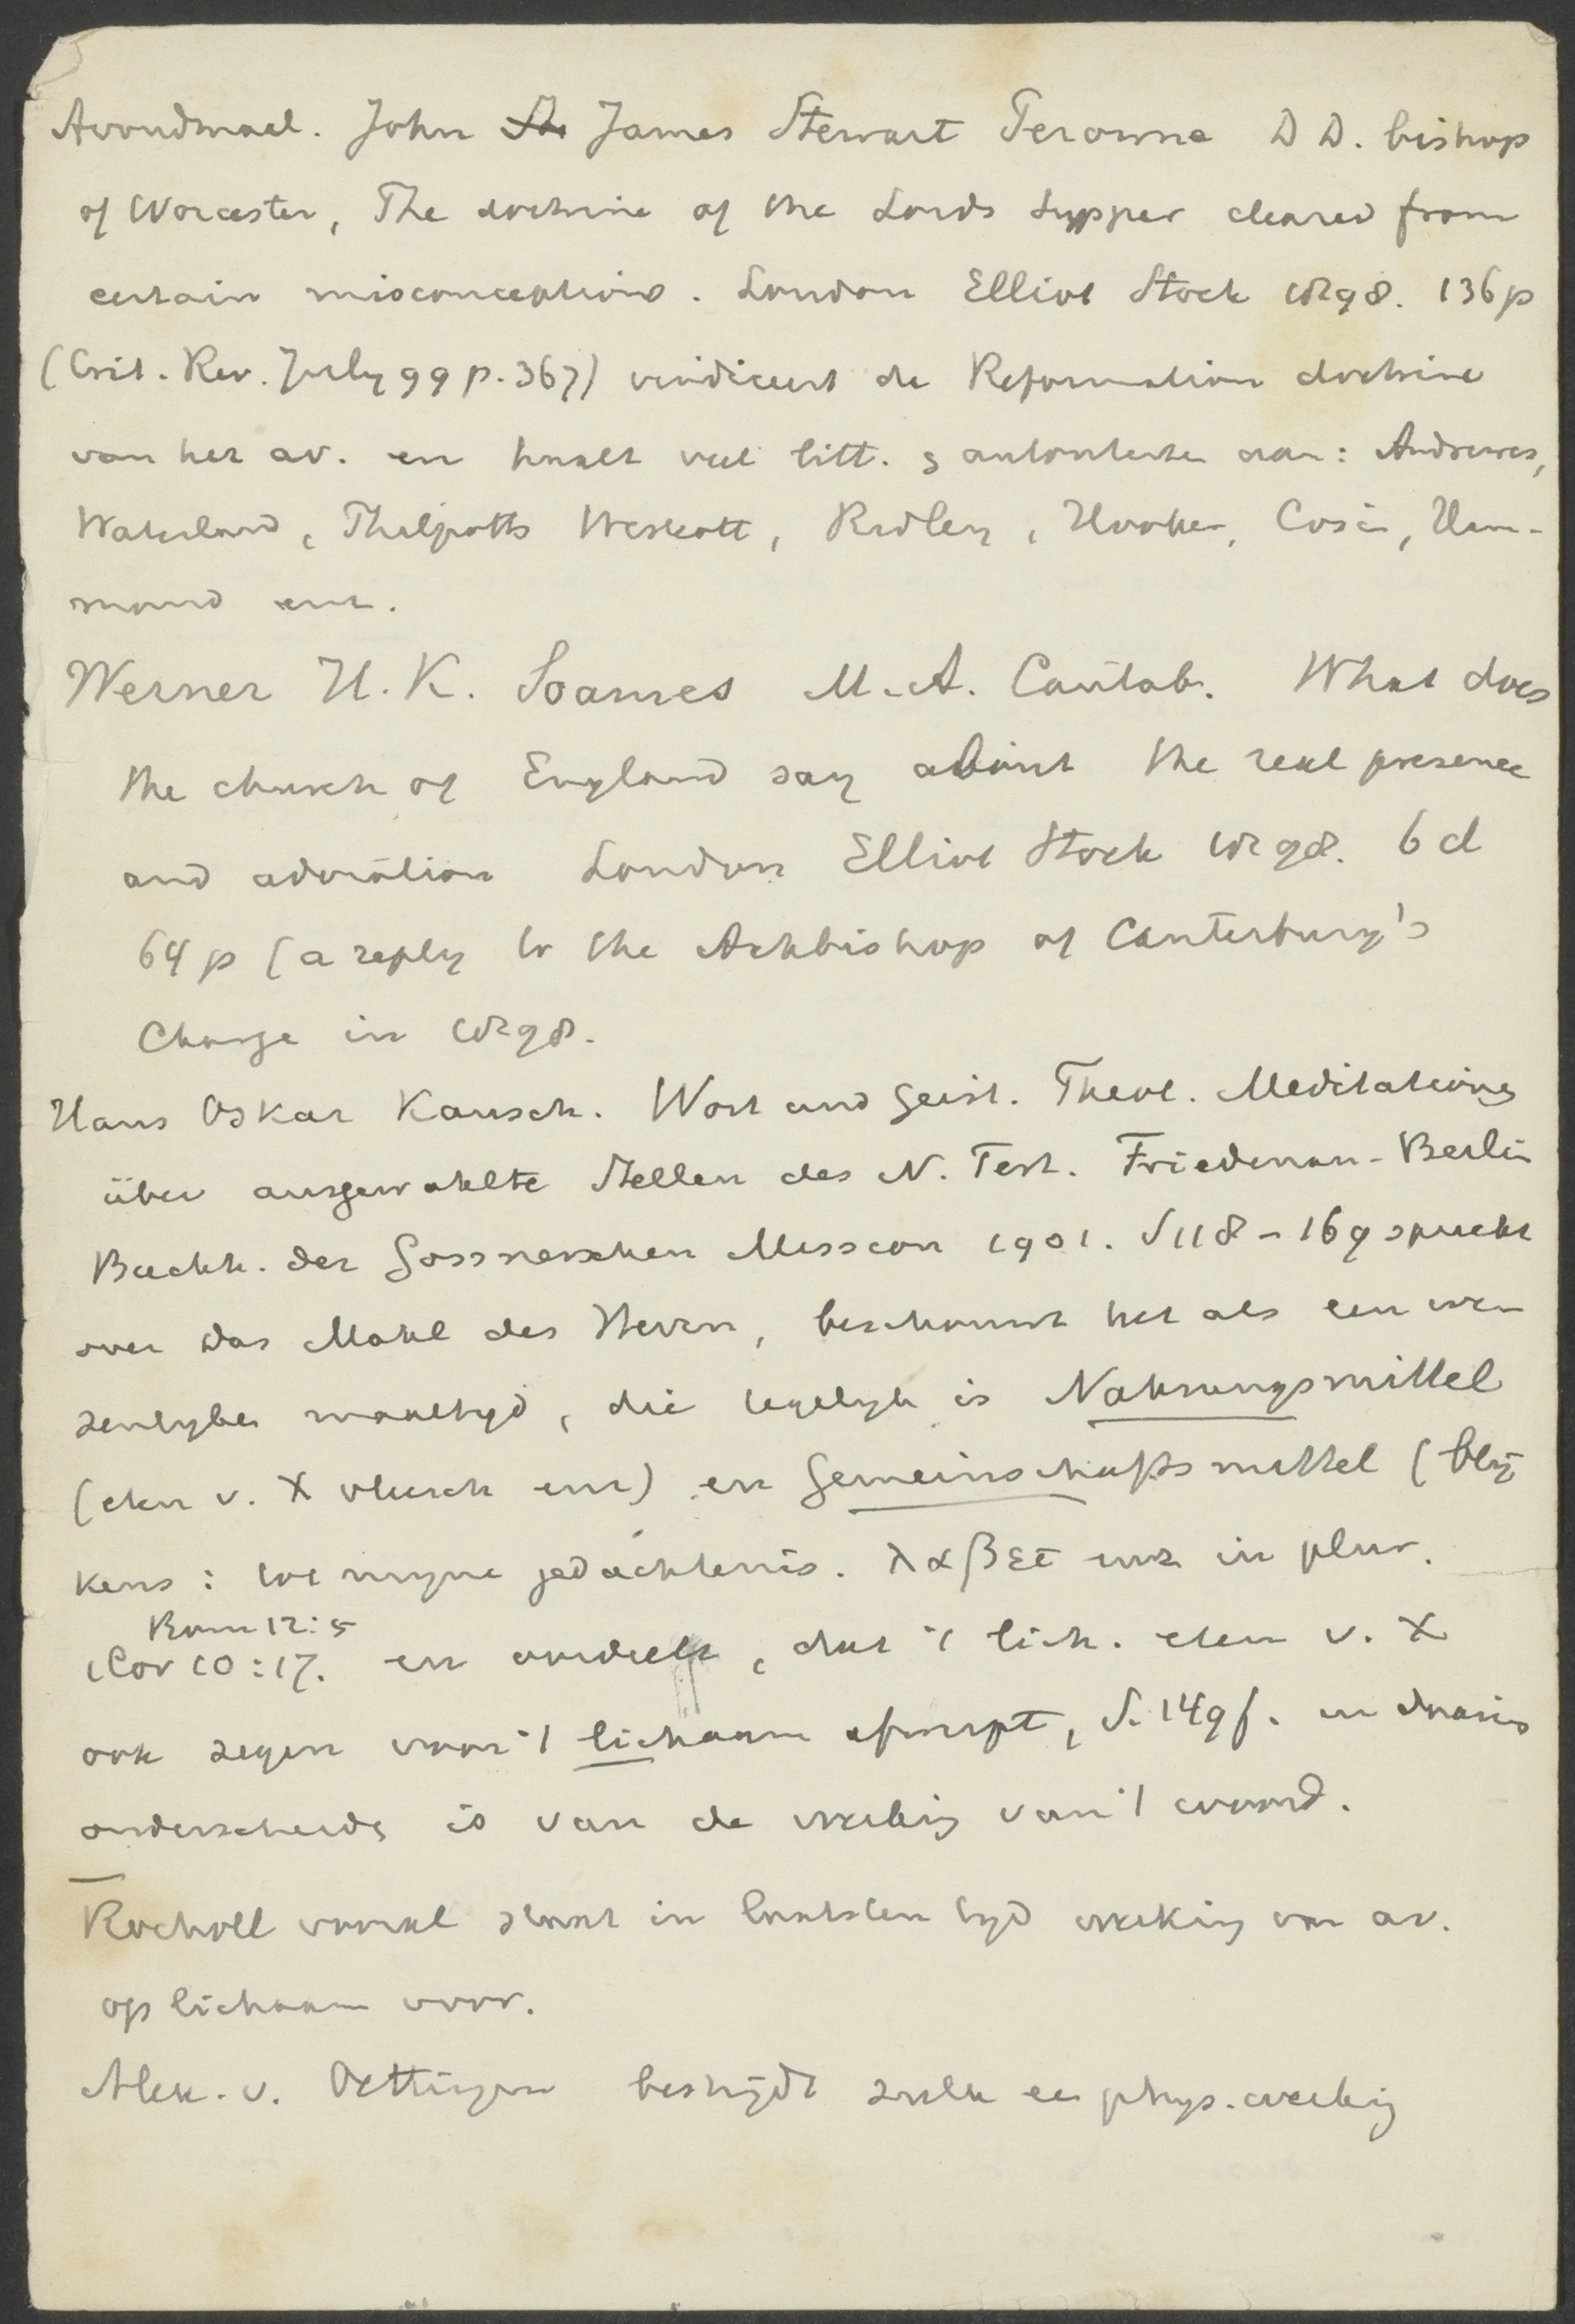 Avondmaal. John St James Stewart Perowne D D. bishop
of Worcester, The doctrine of the Lords Supper cleared from
certain misconceptions. London Elliot Stock 1898. 136 p
(Crit. Rev. July 99 p. 367) vindiceert de Reformation doctrine
van het av. en haalt veel litt. s autoriteiten aan: Andrewes,
Waterland, Philpotts Westcott, Ridley, Hooker, Cosin, Ham-
mond enz.
Werner H. K. Soames M. A. Cantab. What does
the church of England say about the real presence
and adoration London Elliot Stock 1898. 6 d
64 p (a reply to the Archbishop of Canterbury's
Charge in 1898.
Hans Oskar Kausch. Wort und Geist. Theol. Meditationen
über ausgewahlte Stellen des N. Test. Friedenau-Berlin
Buchh. der Gossnerschen Mission 1901. S 118-169 spreekt
over das Mahl des Herrn, beschouwt het als een we-
zenlyke maaltyd, die tegelyk is Nahrungsmittel
(eten v. X vleesch enz) en Gemeinschaftsmittel (bly-
kens: tot myne gedachtenis. λαβετε enz in plur.
Rom 12:5
1 Cor 10:17. en oordeelt, dat 't lich. eten v. X
ook zegen voor 't lichaam afwerpt, S. 149 f. en daarin
onderscheiden is van de werking van 't woord.
Rocholl vooral staat in laatsten tyd werking van av.
op lichaam voor.
Alex. v. Oettingen bestrijdt zulk een phys. werking